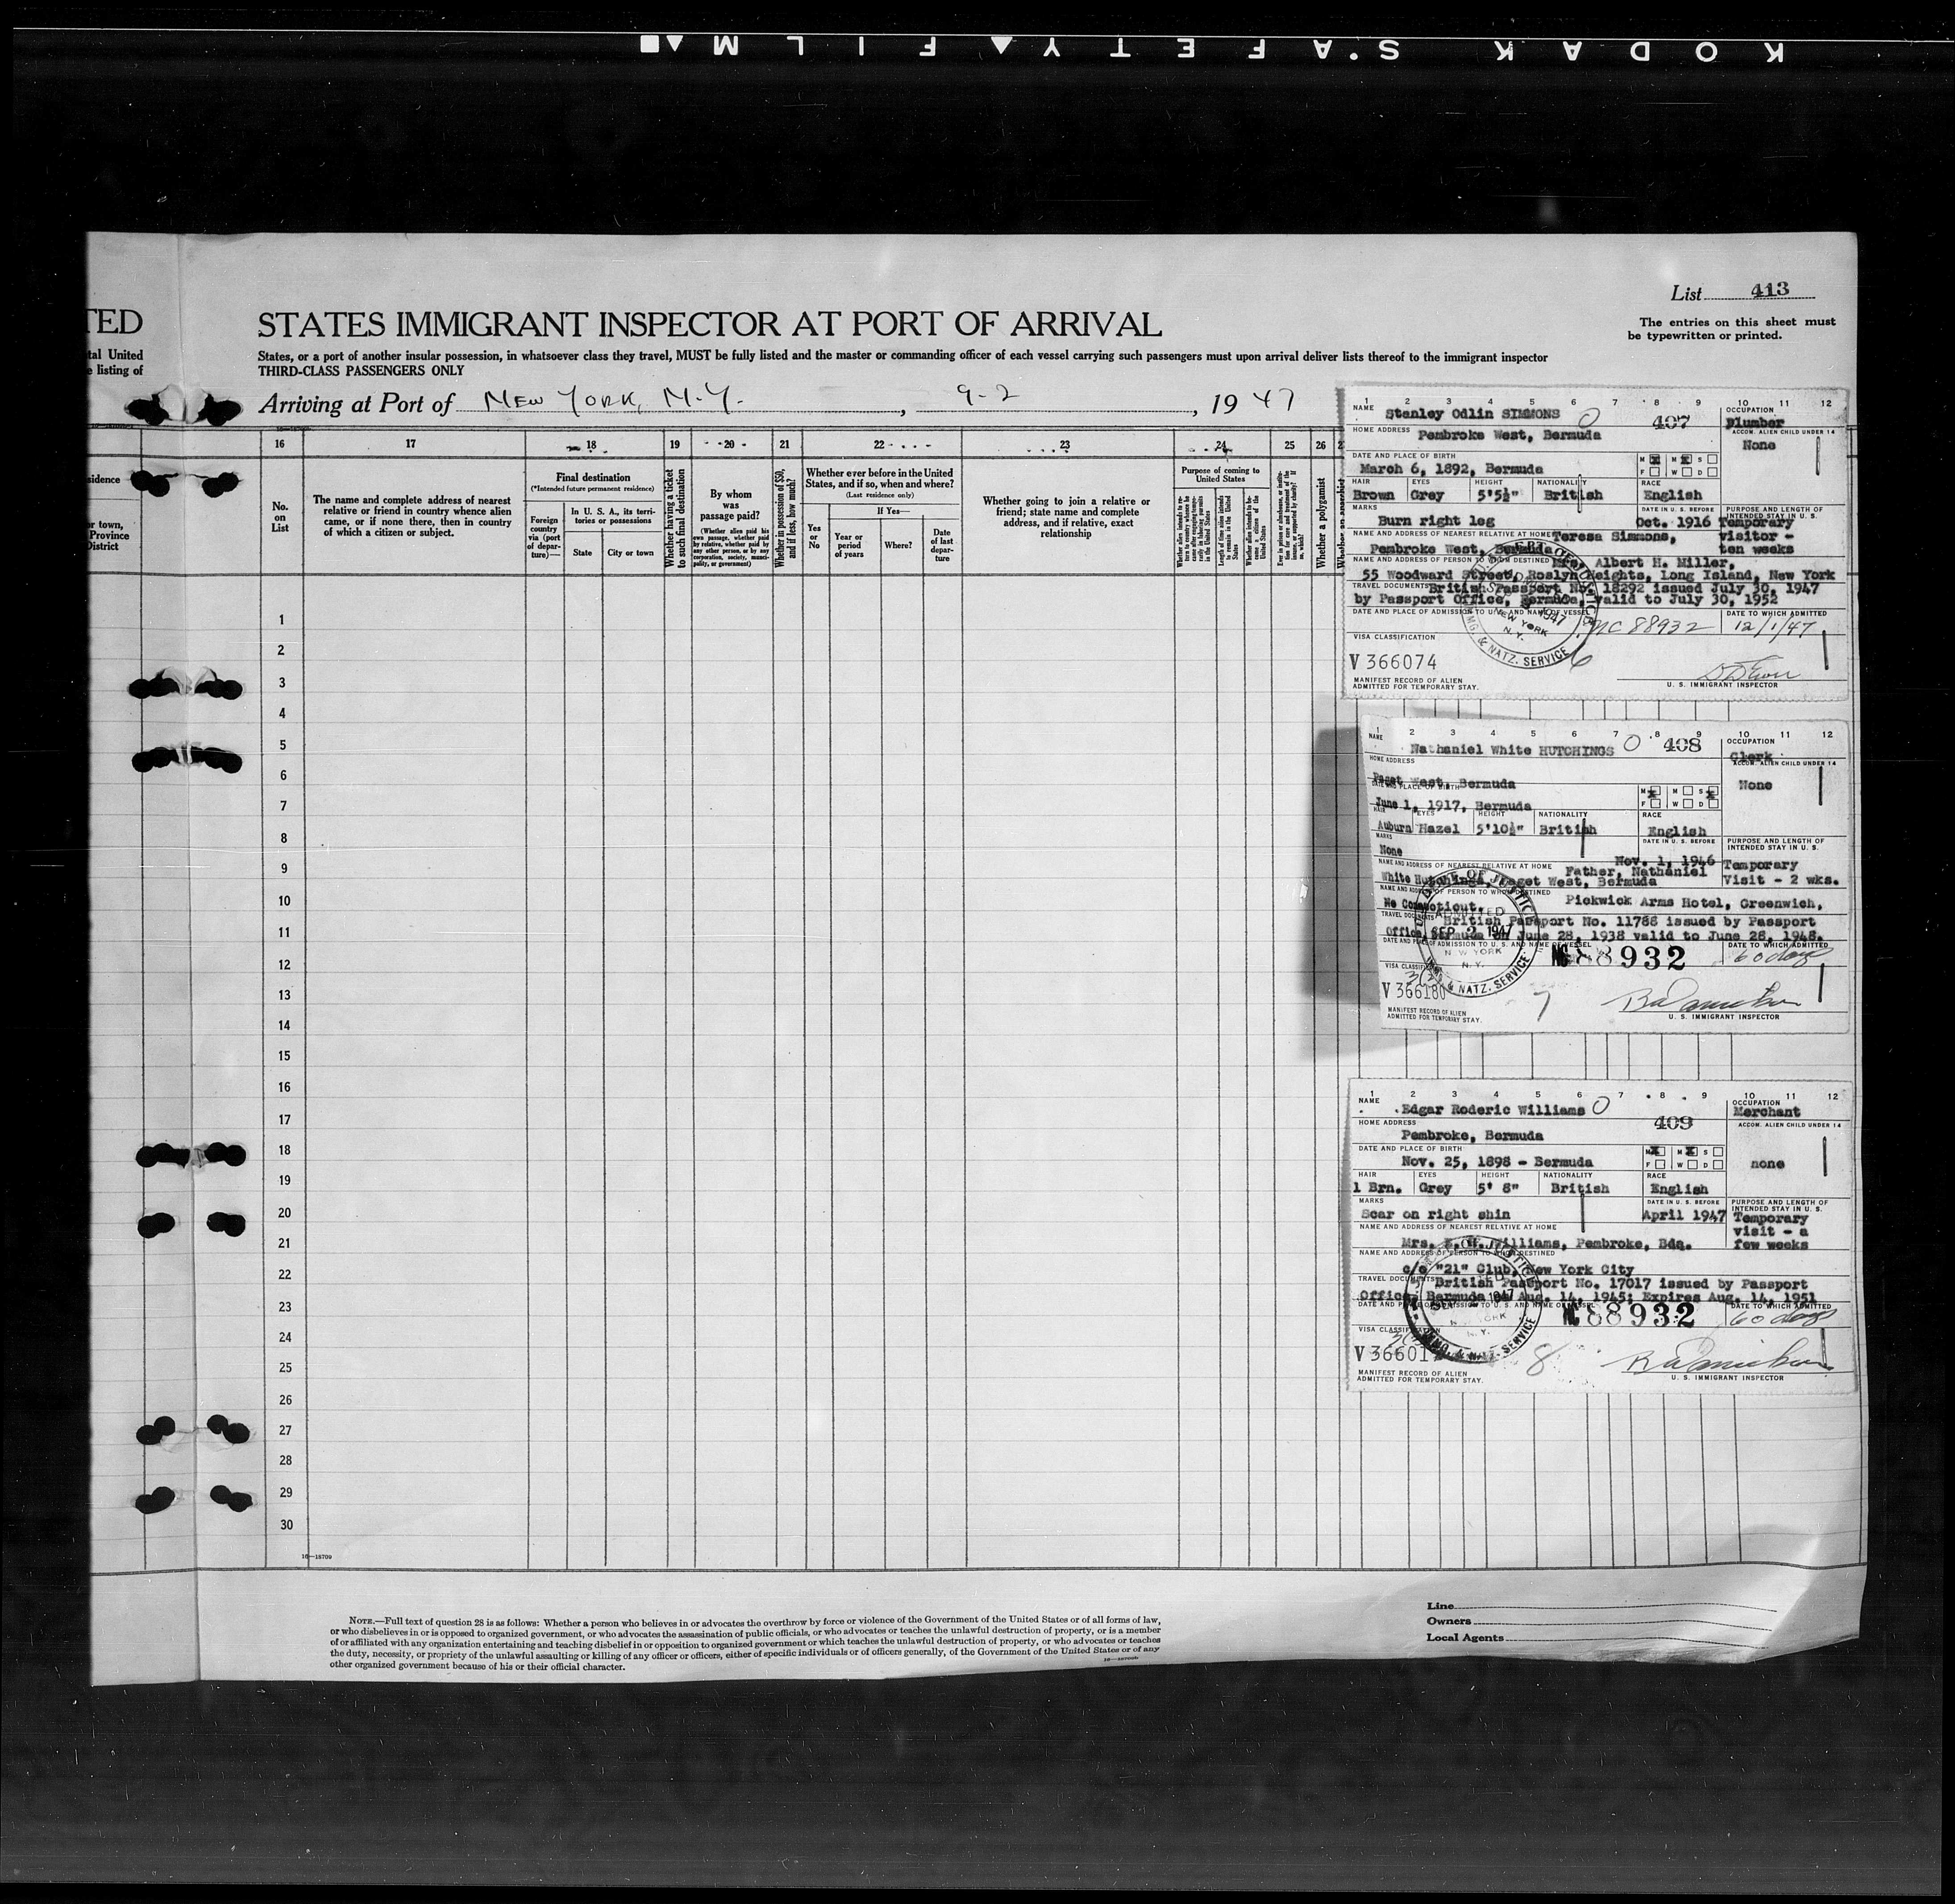 KODAK SAFETY FILM
List 413
The entries on this sheet must
be typewritten or printed.
TED
STATES IMMIGRANT INSPECTOR AT PORT OF ARRIVAL
tal United
e listing of
States, or a port of another insular possession, in whatsoever class they travel, MUST be fully listed and the master or commanding officer of each vessel carrying such passengers must upon arrival deliver lists thereof to the immigrant inspector
THIRD-CLASS PASSENGERS ONLY
Arriving at Port of New York, N.Y., 9-2, 1947
16 17 18 19 20 21 22 23 24 25 26
sidence
r town,
Province
District
No.
on
List
The name and complete address of nearest
relative or friend in country whence alien
came, or if none there, then in country
of which a citizen or subject.
Final destination
(*Intended future permanent residence)
Foreign
country
via (port
of depar-
ture)—
In U. S. A., its terri-
tories or possessions
State
City or town
Whether having a ticket
to such final destination
By whom
was
passage paid?
(Whether alien paid his
own passage, whether paid
by relative, whether paid by
any other person, or by any
corporation, society, munici-
pality, or government)
Whether in possession of $50,
and if less, how much?
Whether ever before in the United
States, and if so, when and where?
(Last residence only)
Yes
or
No
If Yes—
Year or
period
of years
Where?
Date
of last
depar-
ture
Whether going to join a relative or
friend; state name and complete
address, and if relative, exact
relationship
Purpose of coming to
United States
Whether a polygamist
1
2
3
4
5
6
7
8
9
10
11
12
13
14
15
16
17
18
19
20
21
22
23
24
25
26
27
28
29
30
16—18709
1 2 3 4 5 6 7 8 9 10 11 12
NAME
Stanley Odlin SIMMONS
407
OCCUPATION
Plumber
HOME ADDRESS
Pembroke West, Bermuda
ACCOM. ALIEN CHILD UNDER 14
None
DATE AND PLACE OF BIRTH
March 6, 1892, Bermuda
M M S
F W D
HAIR EYES HEIGHT NATIONALITY RACE
Brown Grey 5'5½" British English
MARKS
Burn right leg
DATE IN U. S. BEFORE
Oct. 1916
PURPOSE AND LENGTH OF
INTENDED STAY IN U. S.
Temporary
visitor -
ten weeks
NAME AND ADDRESS OF NEAREST RELATIVE AT HOME
Teresa Simmons,
Pembroke West, Bermuda
NAME AND ADDRESS OF PERSON TO WHOM DESTINED
Mrs. Albert H. Miller,
55 Woodward Street, Roslyn Heights, Long Island, New York
TRAVEL DOCUMENTS
British Passport No. 18292 issued July 30, 1947
by Passport Office, Bermuda, valid to July 30, 1952
DATE AND PLACE OF ADMISSION TO U. S. AND NAME OF VESSEL
NC 88932
DATE TO WHICH ADMITTED
12/1/47
VISA CLASSIFICATION
1947
NEW YORK
N. Y.
IMG. & NATZ. SERVICE
6
V 366074
MANIFEST RECORD OF ALIEN
ADMITTED FOR TEMPORARY STAY.
U. S. IMMIGRANT INSPECTOR
1 2 3 4 5 6 7 8 9 10 11 12
NAME
Nathaniel White HUTCHINGS
408
OCCUPATION
Clerk
HOME ADDRESS
Paget West, Bermuda
ACCOM. ALIEN CHILD UNDER 14
None
DATE AND PLACE OF BIRTH
June 1, 1917, Bermuda
M M S
F W D
HAIR EYES HEIGHT NATIONALITY RACE
Auburn Hazel 5'10½" British English
MARKS
None
DATE IN U. S. BEFORE
Nov. 1, 1946
PURPOSE AND LENGTH OF
INTENDED STAY IN U. S.
Temporary
Visit - 2 wks.
NAME AND ADDRESS OF NEAREST RELATIVE AT HOME
Father, Nathaniel
White Hutchings, Paget West, Bermuda
NAME AND ADDRESS OF PERSON TO WHOM DESTINED
Pickwick Arms Hotel, Greenwich,
Connecticut.
TRAVEL DOCUMENTS
British Passport No. 11788 issued by Passport
Office, Bermuda on June 28, 1938 valid to June 28, 1948.
DATE AND PLACE OF ADMISSION TO U. S. AND NAME OF VESSEL
NC 88932
DATE TO WHICH ADMITTED
60 days
ADMITTED
SEP 2 1947
NEW YORK
N. Y.
& NATZ. SERVICE
V 366180
7
MANIFEST RECORD OF ALIEN
ADMITTED FOR TEMPORARY STAY.
U. S. IMMIGRANT INSPECTOR
1 2 3 4 5 6 7 8 9 10 11 12
NAME
Edgar Roderic Williams
409
OCCUPATION
Merchant
HOME ADDRESS
Pembroke, Bermuda
ACCOM. ALIEN CHILD UNDER 14
none
DATE AND PLACE OF BIRTH
Nov. 25, 1898 - Bermuda
M M S
F W D
HAIR EYES HEIGHT NATIONALITY RACE
l Brn. Grey 5' 8" British English
MARKS
Scar on right shin
DATE IN U. S. BEFORE
April 1947
PURPOSE AND LENGTH OF
INTENDED STAY IN U. S.
Temporary
visit - a
few weeks
NAME AND ADDRESS OF NEAREST RELATIVE AT HOME
Mrs. Williams, Pembroke, Bda.
NAME AND ADDRESS OF PERSON TO WHOM DESTINED
c/o "21" Club, New York City
TRAVEL DOCUMENTS
British Passport No. 17017 issued by Passport
Office, Bermuda on Aug. 14, 1945; Expires Aug. 14, 1951
DATE AND PLACE OF ADMISSION TO U. S. AND NAME OF VESSEL
NC 88932
DATE TO WHICH ADMITTED
60 days
VISA CLASSIFICATION
1947
N. Y.
IMMG. & NATZ. SERVICE
V 36601
8
MANIFEST RECORD OF ALIEN
ADMITTED FOR TEMPORARY STAY.
U. S. IMMIGRANT INSPECTOR
NOTE.—Full text of question 28 is as follows: Whether a person who believes in or advocates the overthrow by force or violence of the Government of the United States or of all forms of law,
or who disbelieves in or is opposed to organized government, or who advocates the assassination of public officials, or who advocates or teaches the unlawful destruction of property, or is a member
of or affiliated with any organization entertaining and teaching disbelief in or opposition to organized government or which teaches the unlawful destruction of property, or who advocates or teaches
the duty, necessity, or propriety of the unlawful assaulting or killing of any officer or officers, either of specific individuals or of officers generally, of the Government of the United States or of any
other organized government because of his or their official character.
Line
Owners
Local Agents